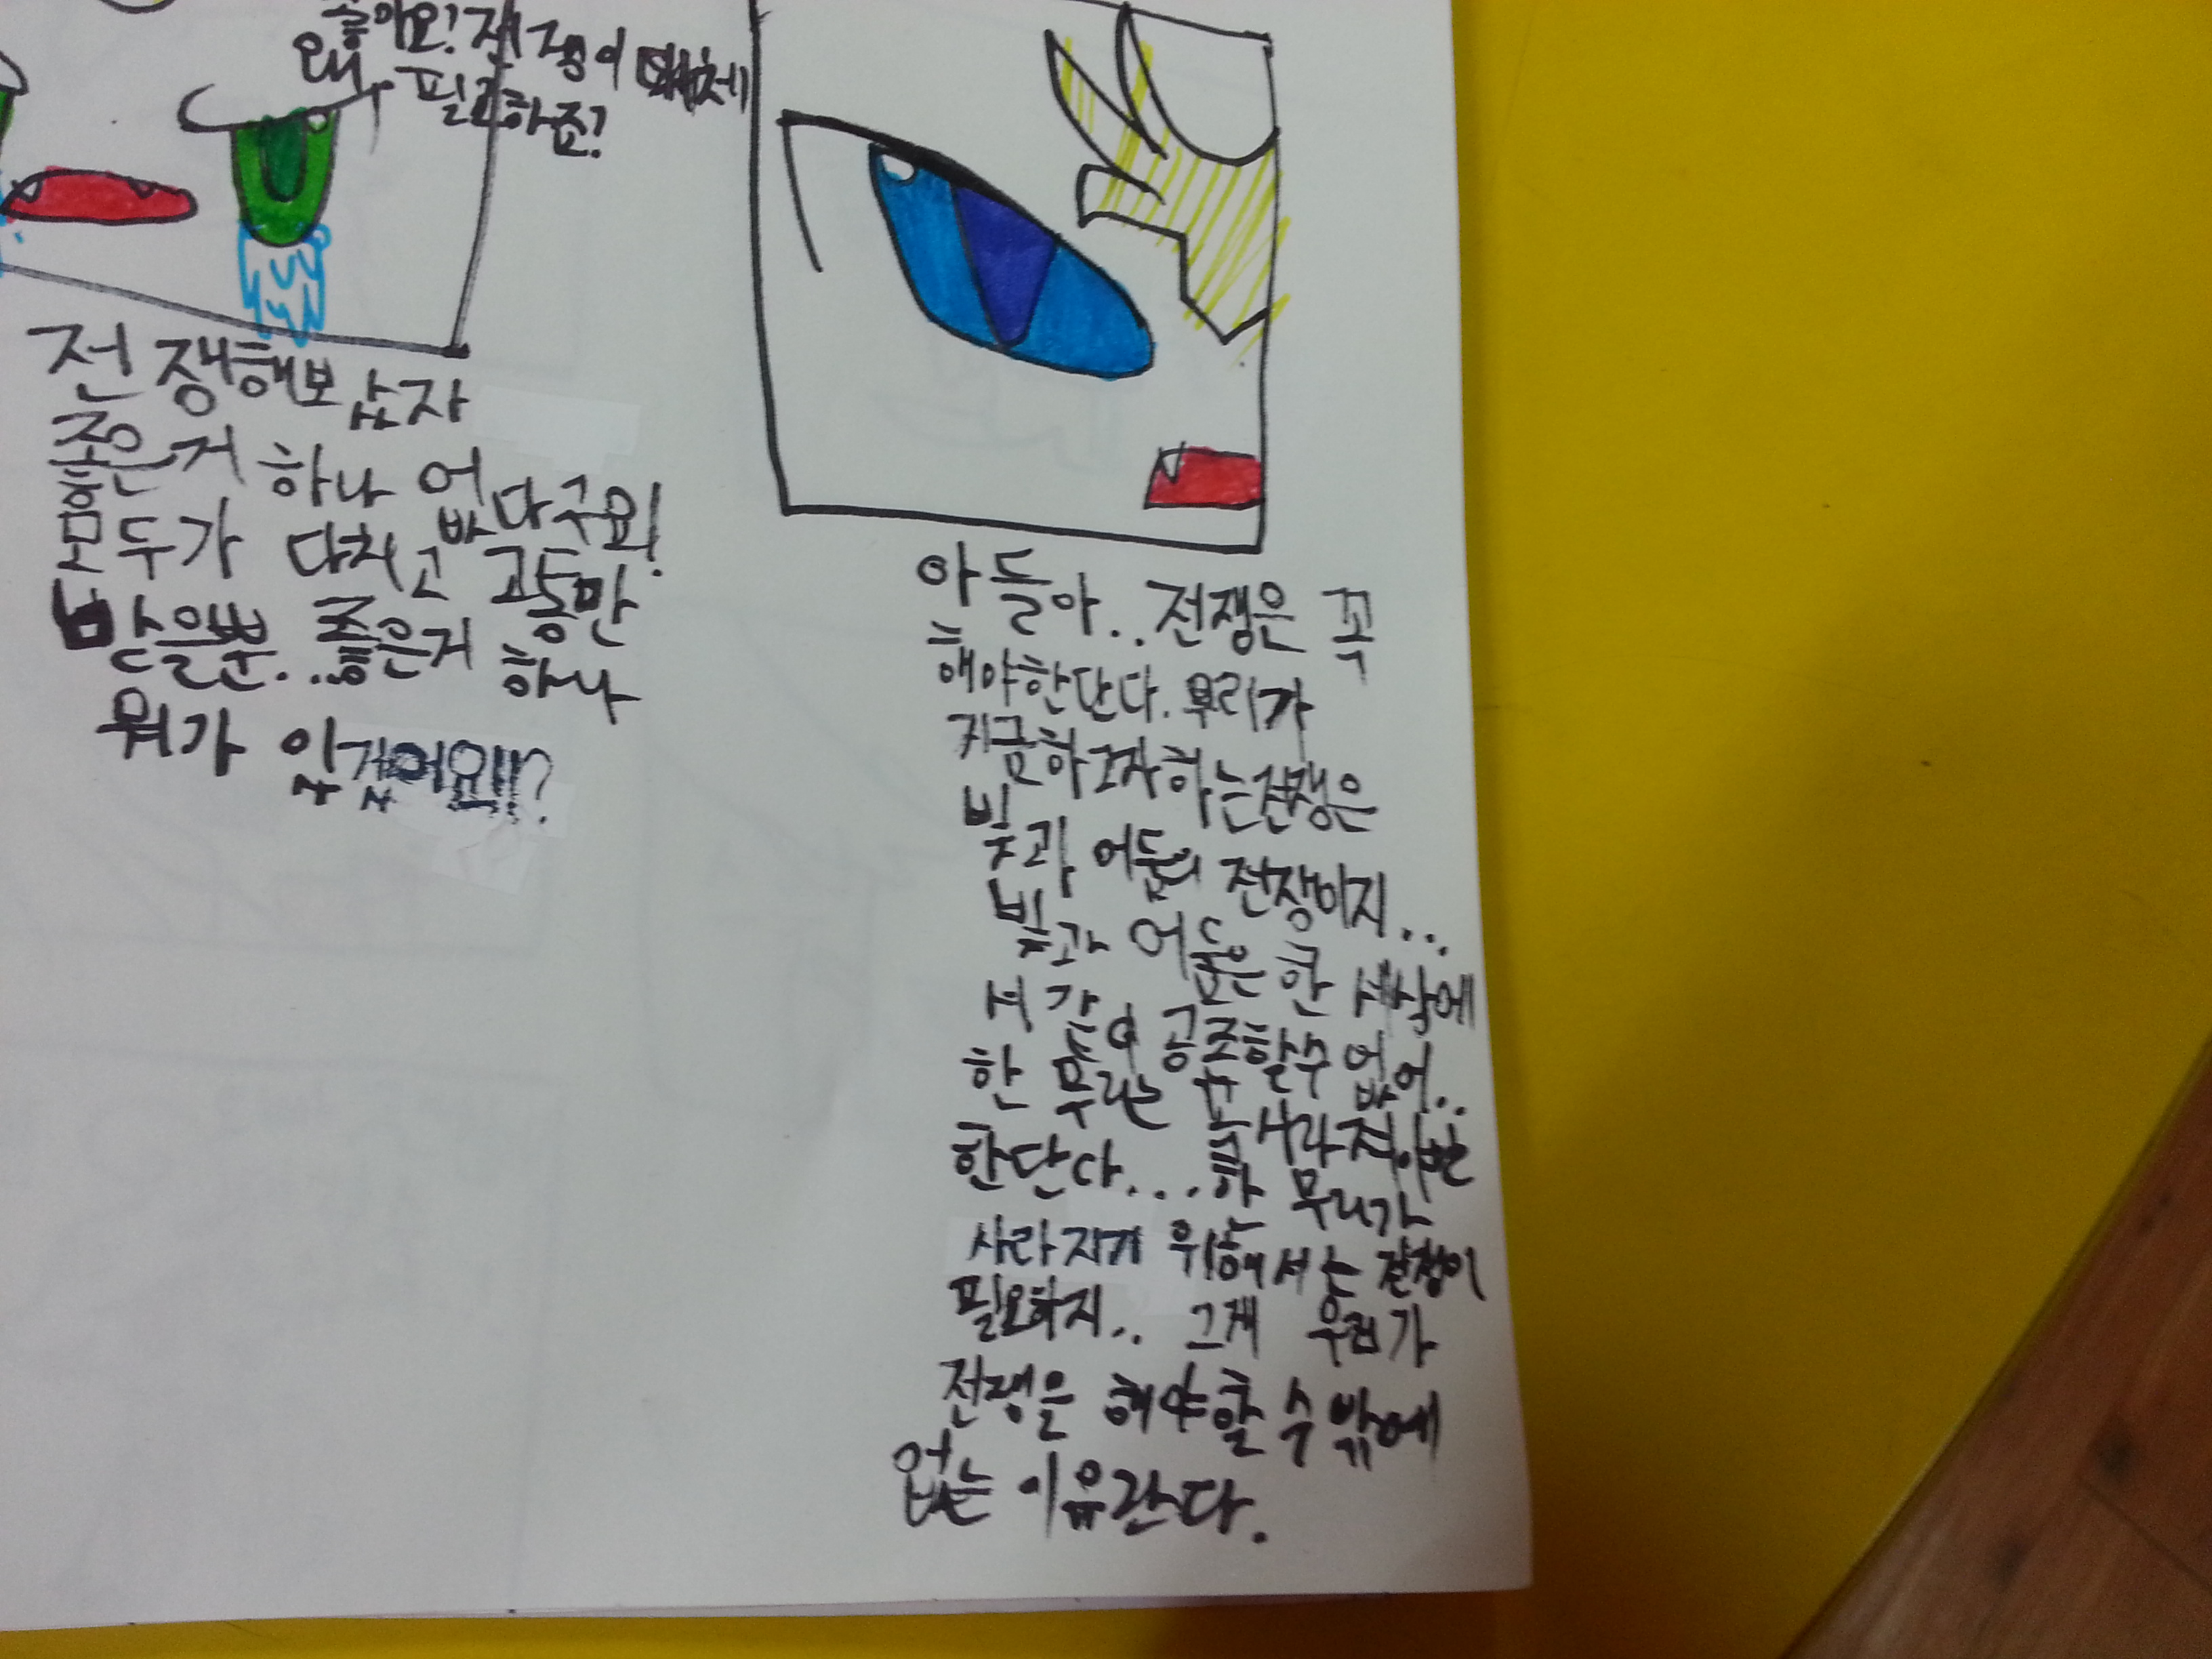 좋아요! 전쟁이 대체
왜.. 필요하죠?
전쟁해보았자
좋은거 하나 없다구요!
모두가 다치고 고통만
받을뿐...좋은거 하나
뭐가 있겠어요!!!?
아들아..전쟁은 꼭
해야한단다. 우리가
지금하고자하는전쟁은
빛과 어둠의 전쟁이지...
빛과 어둠은 한 세상에
서 같이 공존할수 없어..
한 무리는 꼭 사라져야만
한단다....한 무리가
사라지기 위해서는 전쟁이
필요하지.. 그게 우리가
전쟁을 해야할 수 밖에
없는 이유란다.